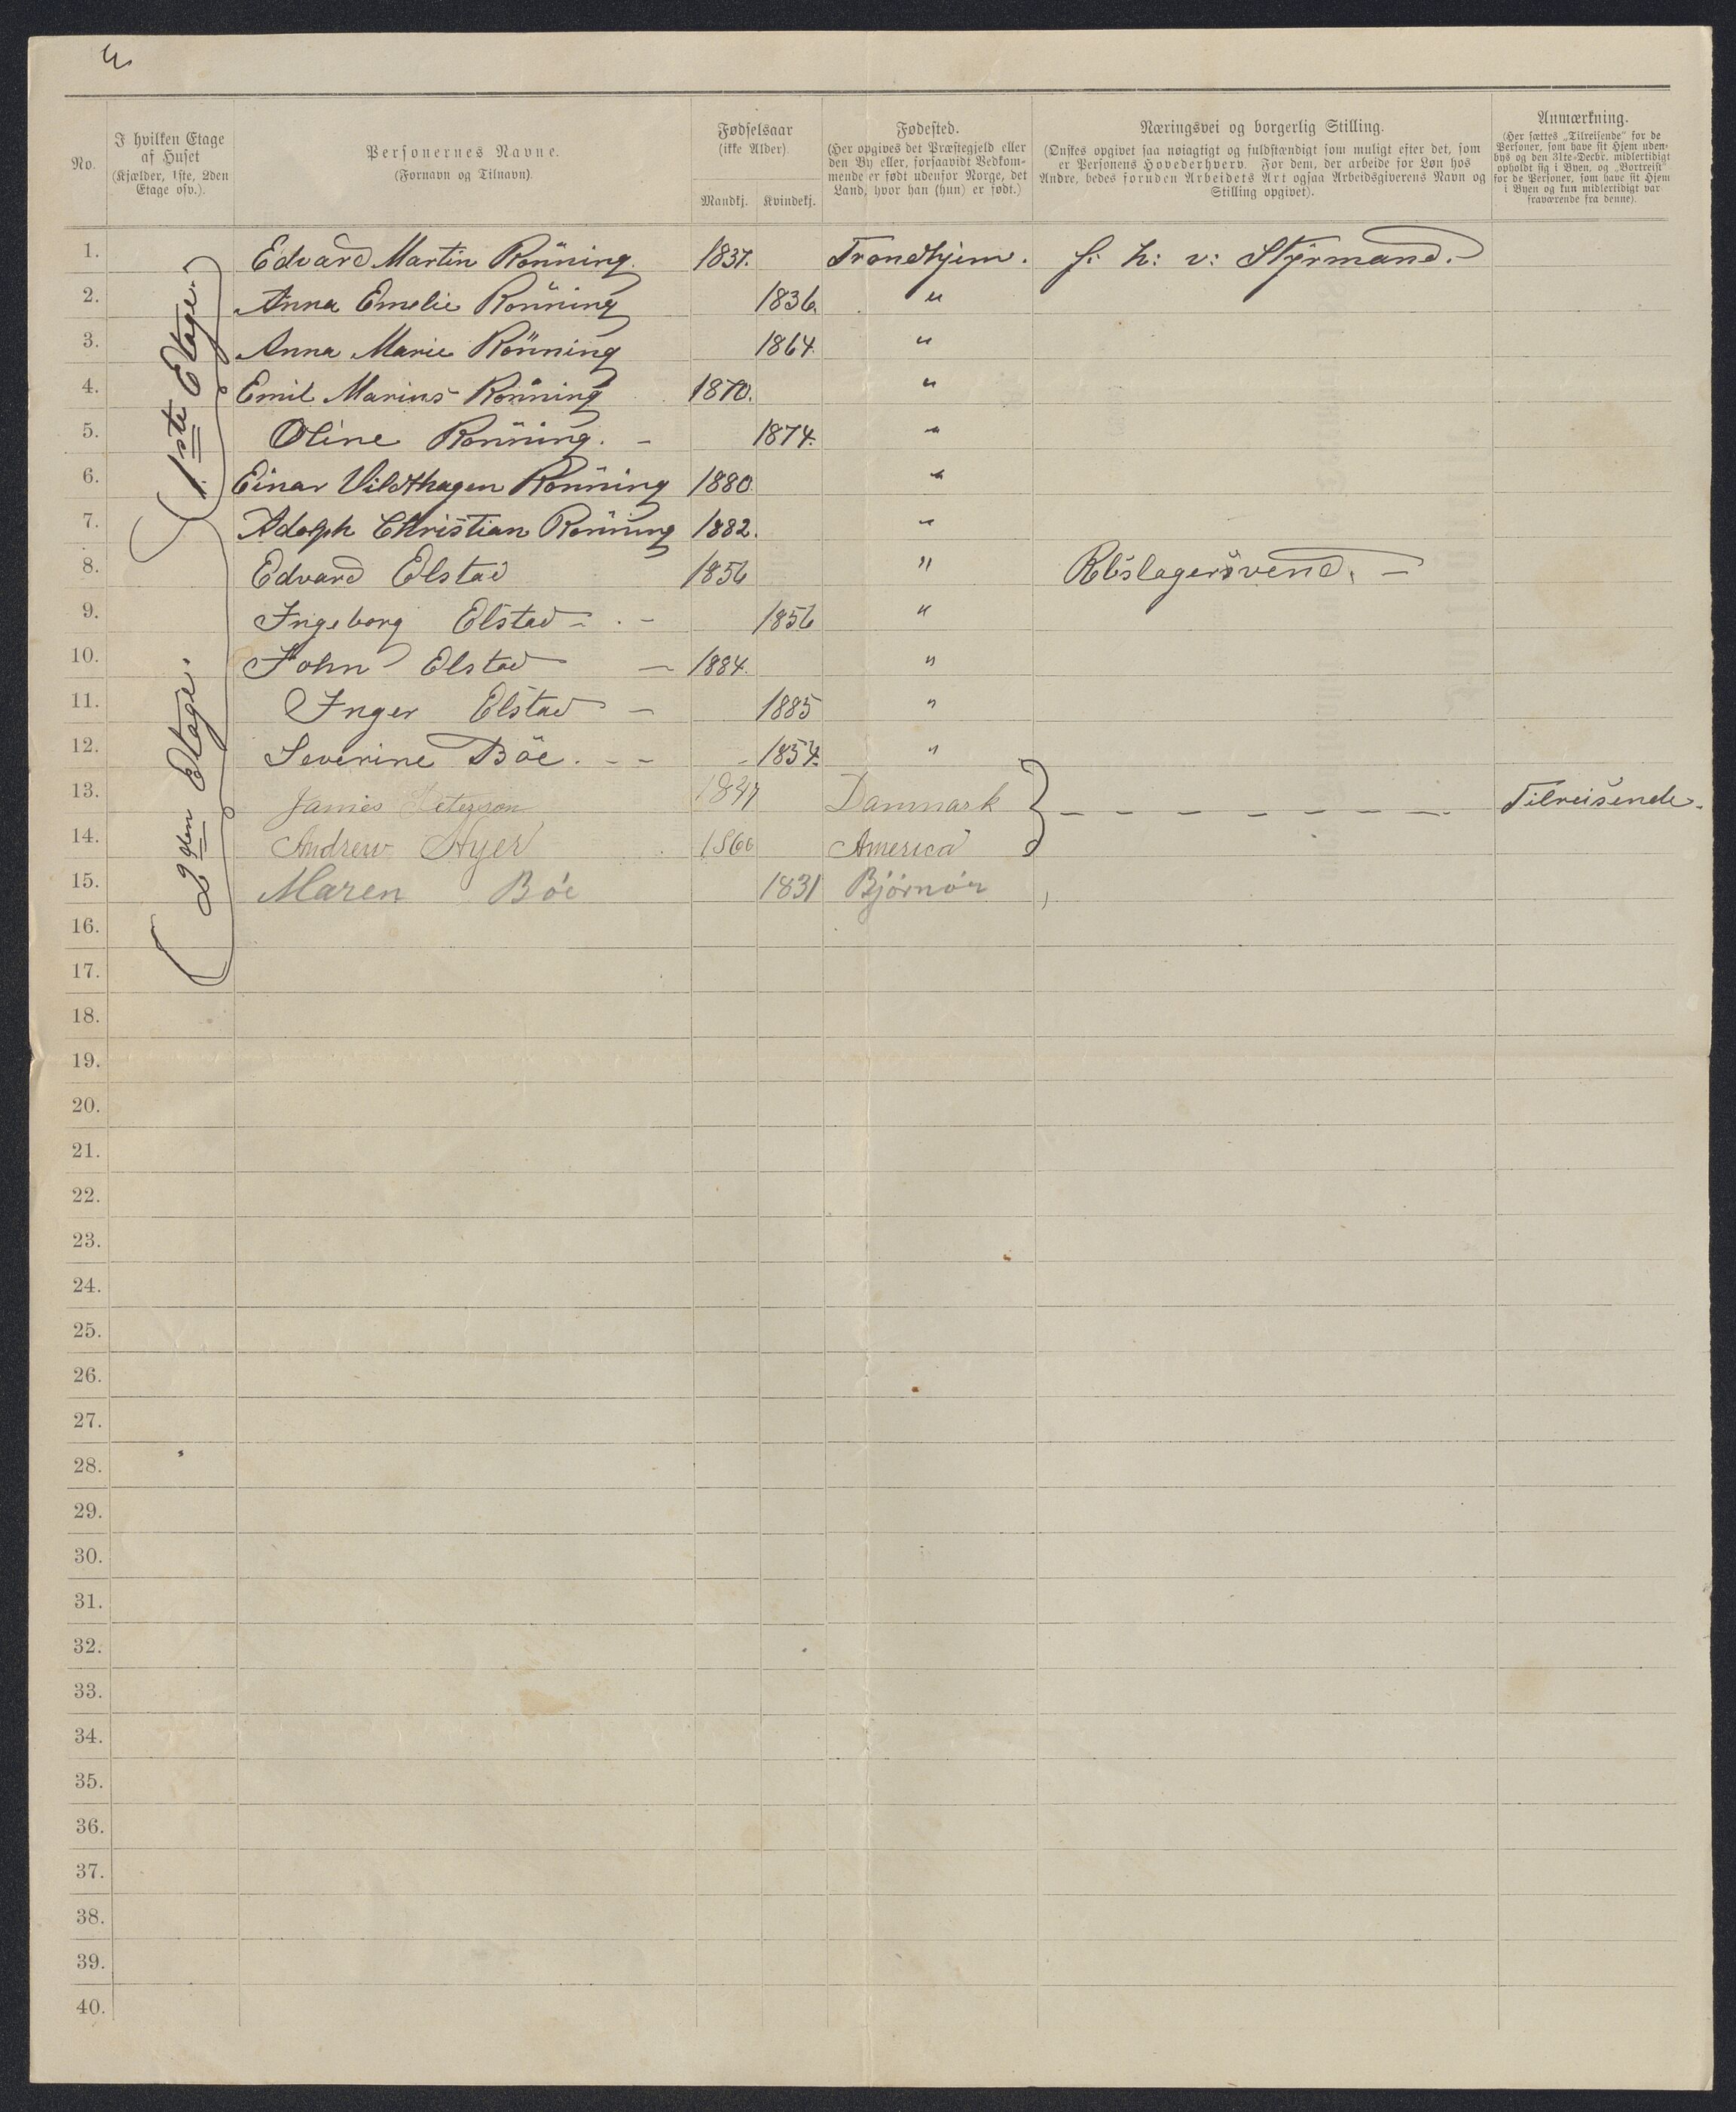 No.
I hvilken Etage
af Huset
(Kjælder, 1ste, 2den
Etage osv.).
Personernes Navne.
(Fornavn og Tilnavn).
Fødselsaar
(ikke Alder).
Mandkj. Kvindekj.
Fødested.
(Her opgives det Præstegjeld eller
den By eller, forsaavidt Vedkom-
mende er født udenfor Norge, det
Land, hvor han (hun) er født.)
Næringsvei og borgerlig Stilling.
(Ønskes opgivet saa nøiagtigt og fuldstændigt som muligt efter det, som
er Personens Hovederhverv. For dem, der arbeide for Løn hos
Andre, bedes foruden Arbeidets Art ogsaa Arbeidsgiverens Navn og
Stilling opgivet).
Anmærkning.
(Her sættes „Tilreisende" for de
Personer, som have sit Hjem uden-
bys og den 31te Decbr. midlertidigt
opholdt sig i Byen, og „Bortreist"
for de Personer, som have sit Hjem
i Byen og kun midlertidigt var
fraværende fra denne).
1ste Etage.
2den Etage.
1. Edvard Martin Rönning. 1837. Trondhjem. f: h: v: Styrmand.
2. Anna Emelie Rönning 1836. "
3. Anna Marie Rönning 1864. "
4. Emil Marius Rönning 1870. "
5. Oline Rönning. - 1874. "
6. Einar Vildthagen Rönning 1880. "
7. Adolph Christian Rönning 1882. "
8. Edvard Elstad 1856 " Rebslagersvend. -
9. Ingeborg Elstad - . - 1856 "
10. John Elstad - 1884. "
11. Inger Elstad - 1885 "
12. Severine Böe. - - - 1854. "
13. James Peterson 1847 Danmark } - - - - - - - Tilreisende.
14. Andrew Hyer 1866 America
15. Maren Bóe 1831 Bjórnór
16.
17.
18.
19.
20.
21.
22.
23.
24.
25.
26.
27.
28.
29.
30.
31.
32.
33.
34.
35.
36.
37.
38.
39.
40.